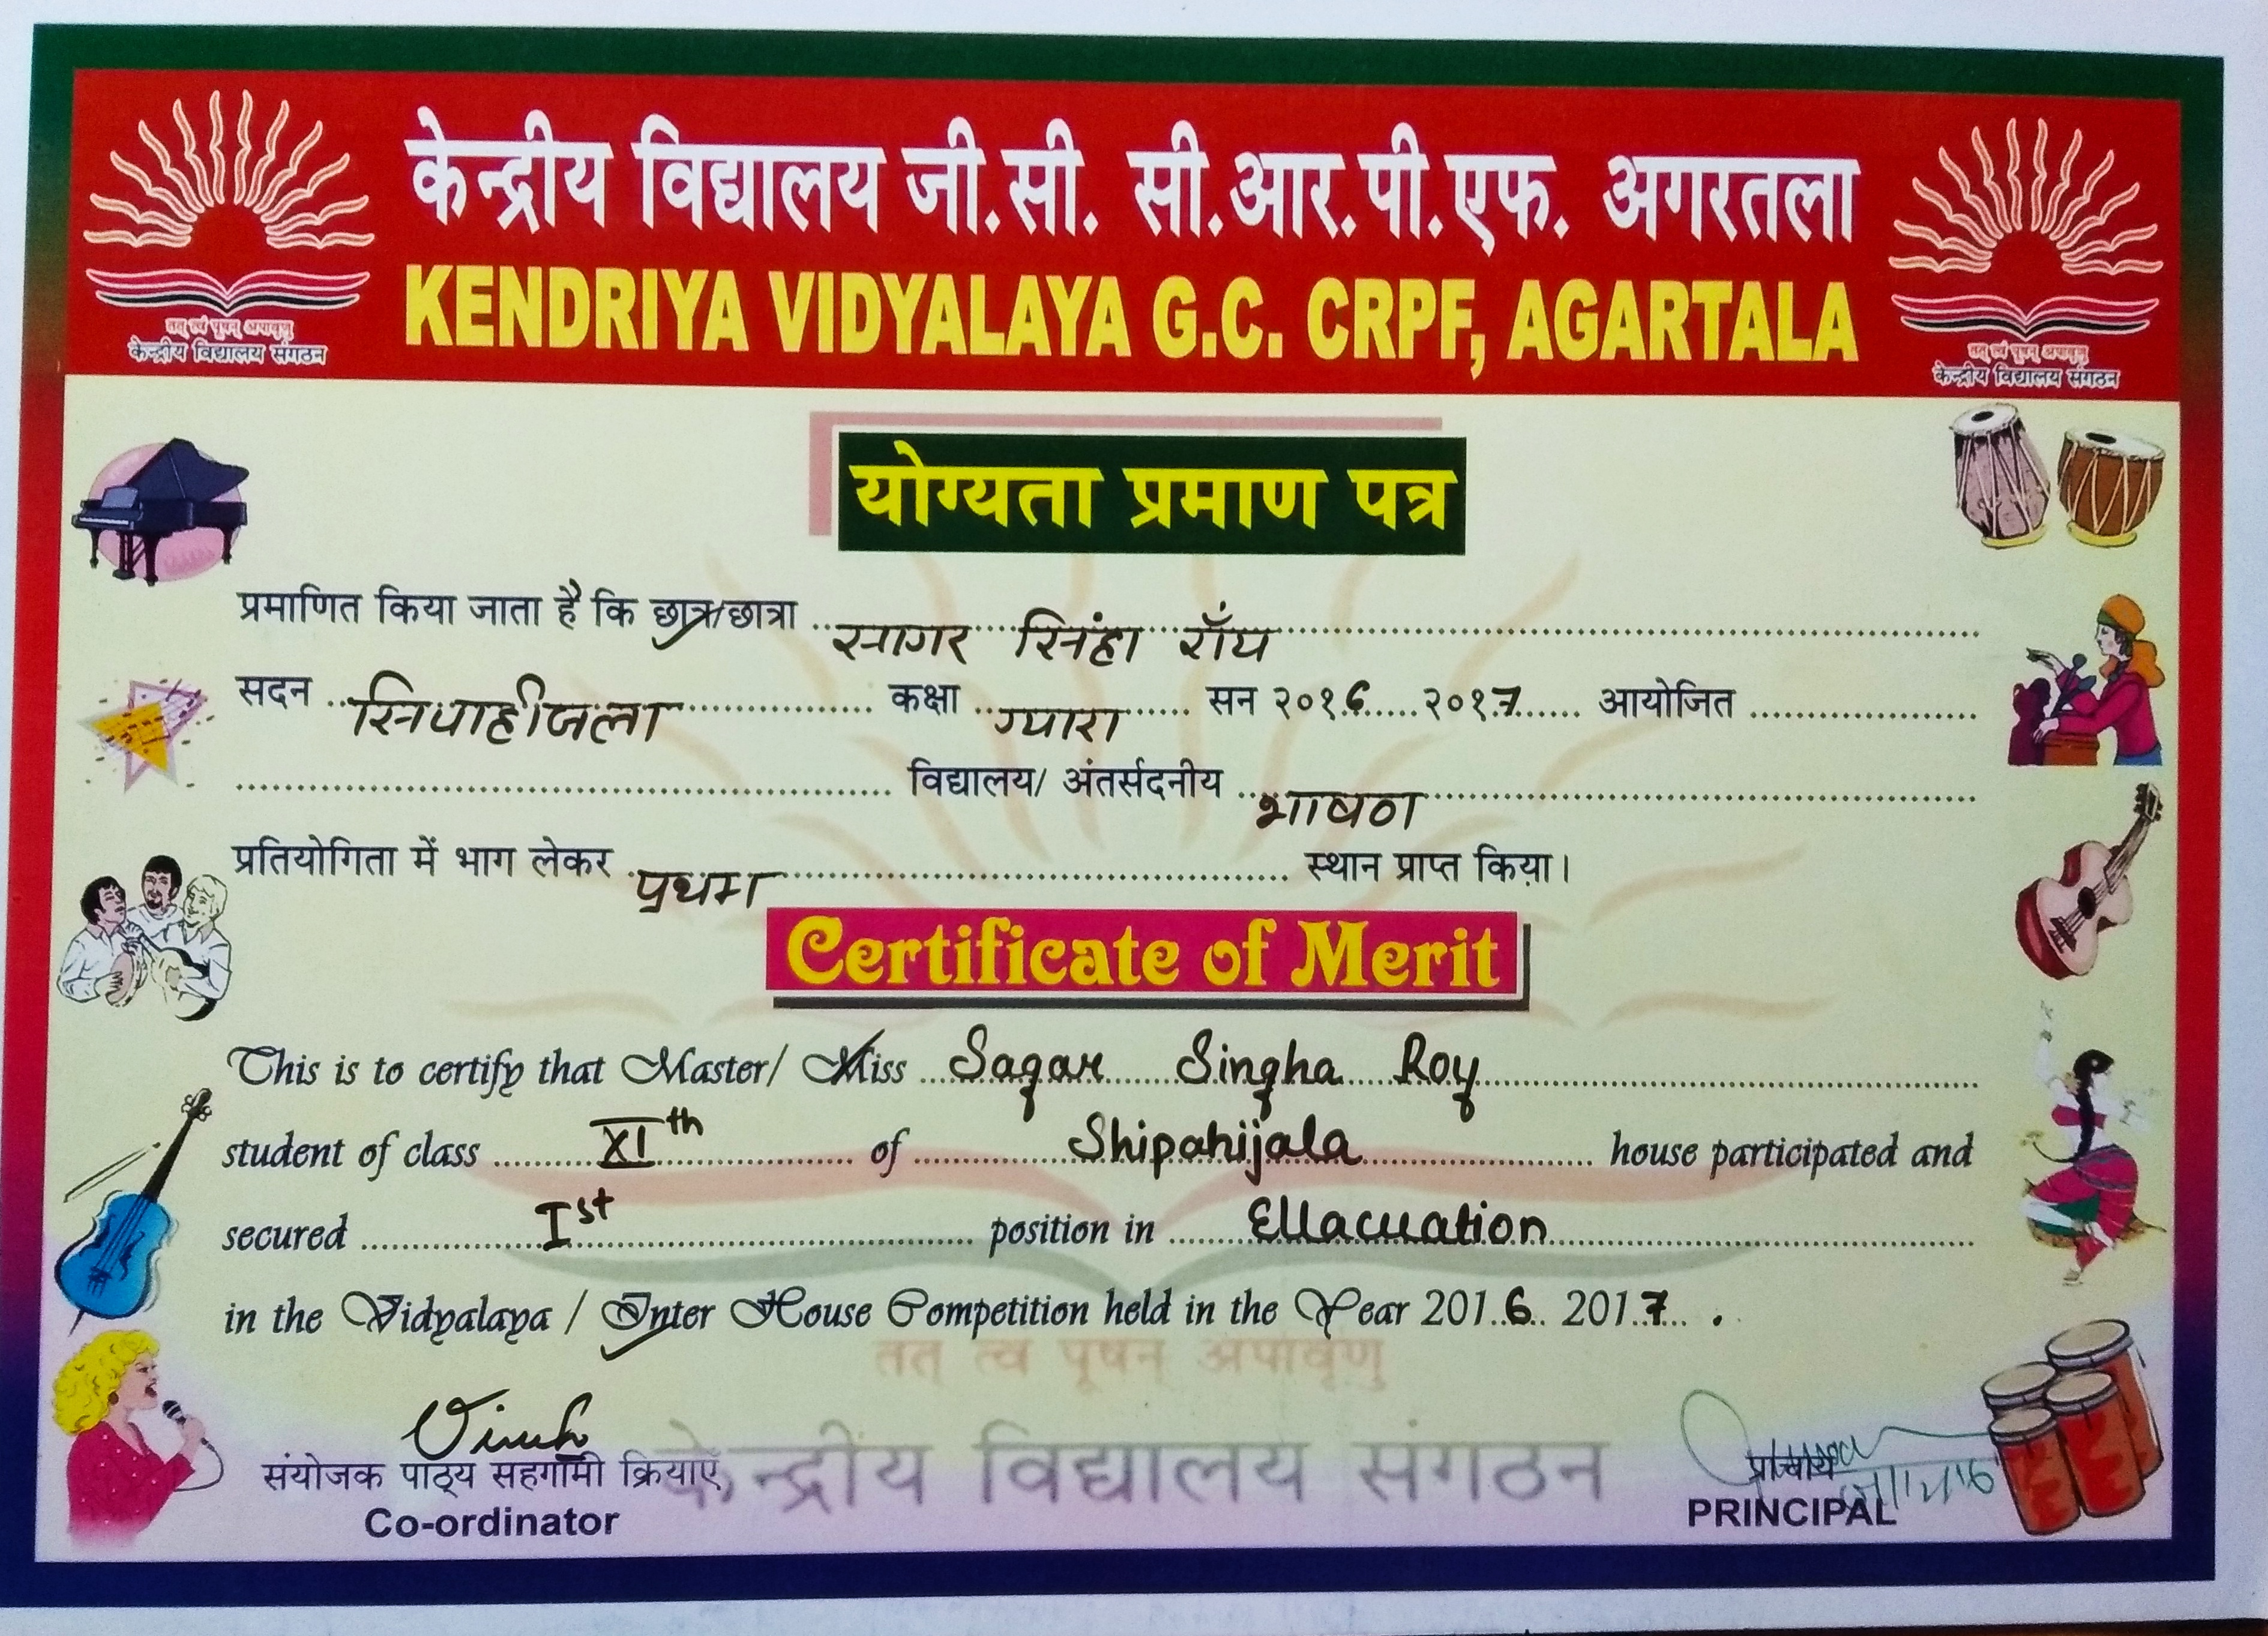 केन्द्रीय विद्यालय जी.सी. सी.आर.पी.एफ. अगरतला
KENDRIYA VIDYALAYA G.C. CRPF, AGARTALA
तत् त्वं पूषन् अपावृणु
केन्द्रीय विद्यालय संगठन
तत् त्वं पूषन् अपावृणु
केन्द्रीय विद्यालय संगठन
योग्यता प्रमाण पत्र
प्रमाणित किया जाता है कि छात्र/छात्रा सागर सिंहा रॉय
सदन सिपाहीजला कक्षा ग्यारा सन २०१6 २०१7 आयोजित
विद्यालय/ अंतर्सदनीय भाषण
प्रतियोगिता में भाग लेकर प्रथम स्थान प्राप्त किया।
Certificate of Merit
This is to certify that Master/ Miss Sagar Singha Roy
student of class XIth of Shipahijala house participated and
secured Ist position in Ellacuation
in the Vidyalaya / Inter House Competition held in the Year 2016 2017 .
तत् त्व पूषन् अपावृणु
केन्द्रीय विद्यालय संगठन
संयोजक पाठ्य सहगामी क्रियाएँ
Co-ordinator
प्राचार्य
PRINCIPAL